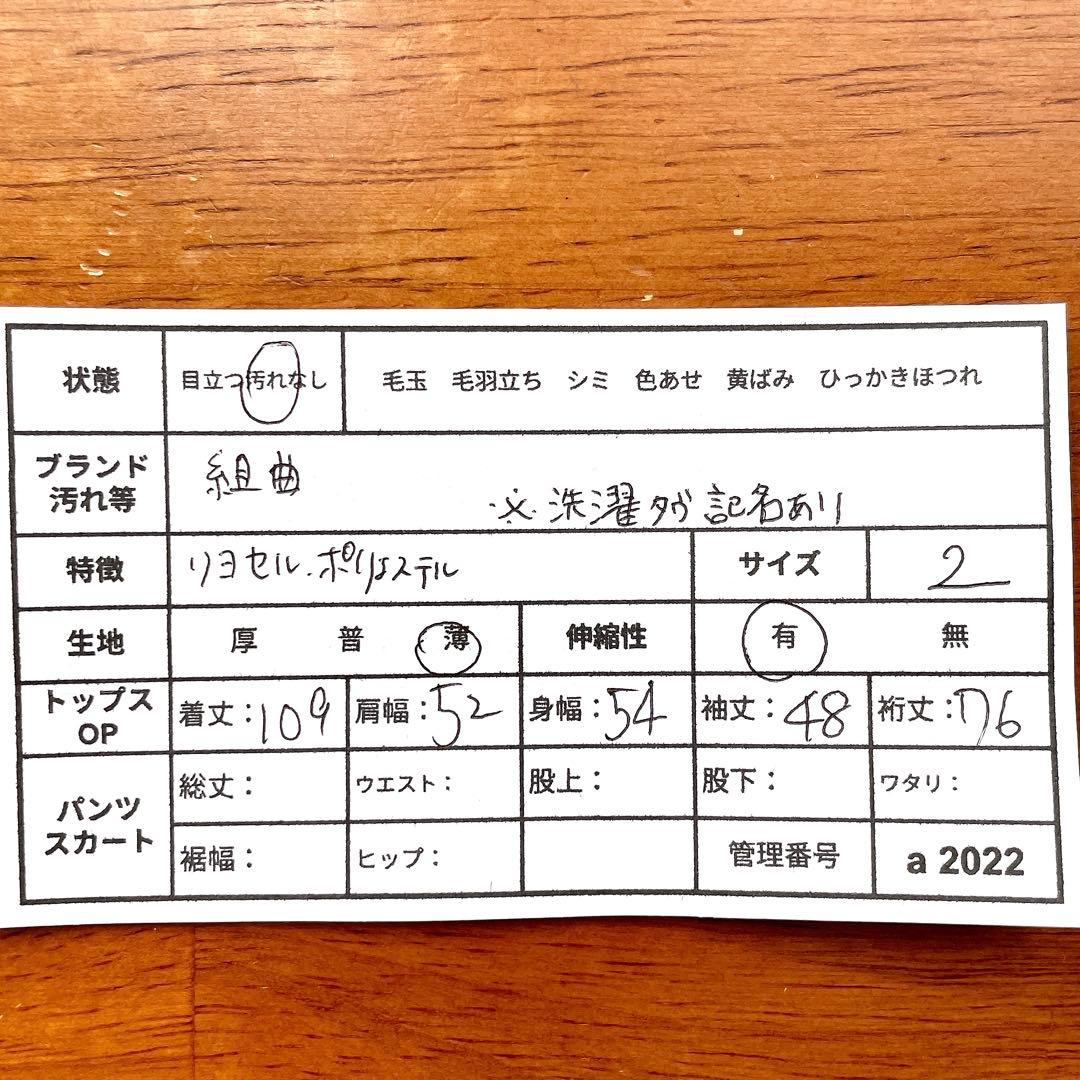 状態 目立つ汚れなし 毛玉 毛羽立ち シミ 色あせ 黄ばみ ひっかきほつれ
ブランド 組曲
汚れ等 ※洗濯タグ記名あり
特徴 リヨセル.ポリエステル サイズ 2
生地 厚 普 薄 伸縮性 有 無
トップス OP 着丈:109 肩幅:52 身幅:54 袖丈:48 裄丈:76
パンツ スカート 総丈: ウエスト: 股上: 股下: ワタリ:
裾幅: ヒップ: 管理番号 a 2022